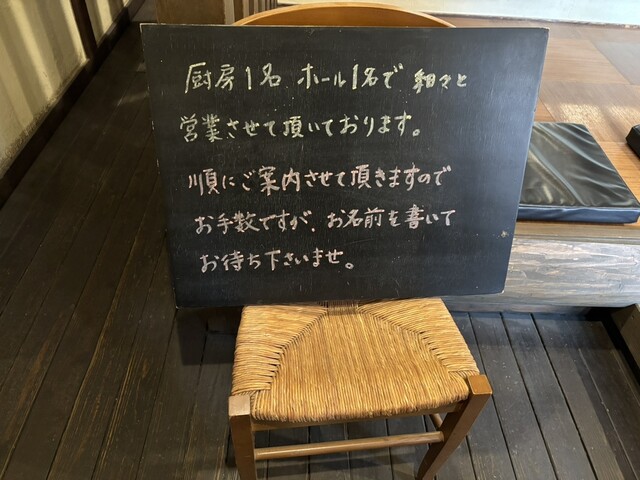 厨房1名 ホール1名で 細々と
営業させて頂いております。
順にご案内させて頂きますので
お手数ですが、お名前を書いて
お待ち下さいませ。